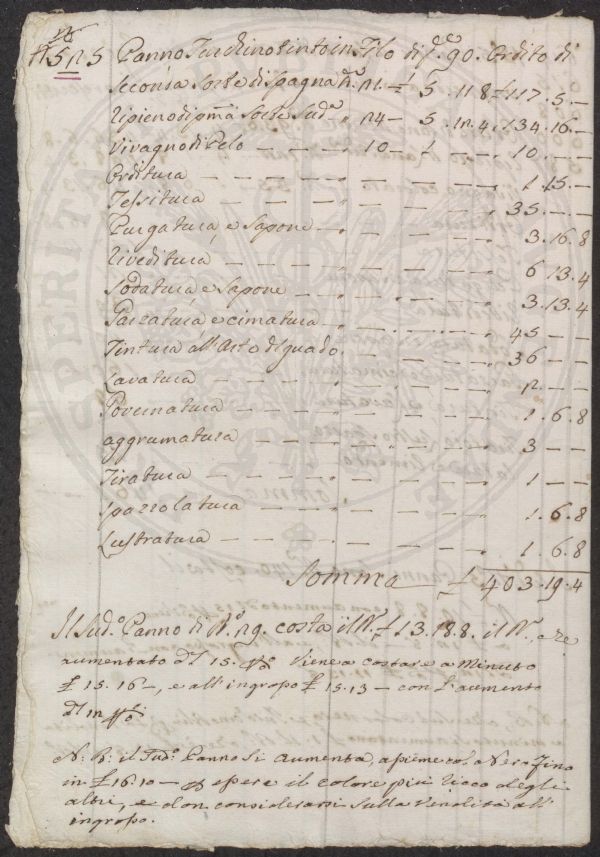 Panno Turchino tinto in Filo di f.e 90. Ordito di
Seconda Sorte di Spagna 5. 11 8 £ 117. 5. —
Ripieno di p.ma Sorte Sud.o „ 24 — 5. 12. 4 „ 134. 16. —
Vivagno di Pelo — — — „ 10 — 1. — „ 10. — —
Orditura — — — 1. 15. —
Tessitura — — — „ 35. — —
Purgatura, e Sapone — „ — — „ 3. 16. 8
Riveditura — — — 6. 13. 4
Sodatura e Sapone — „ — — „ 3. 13. 4
Garzatura e cimatura — „ — — „ 45 — —
Tintura all'Arte di guado. — — „ 36 — —
Lavatura — — — „ 2. — —
— — — „ 1. 6. 8
aggrumatura — — — „ 3 — —
Tiratura — — — „ 1 — —
Spazzolatura — — — „ 1. 6. 8
Lustratura — — — „ 1. 6. 8
Somma — £ 403. 19. 4
Il Sud.o Panno di costa il £ 13. 18. 8. il e
aumentato 15. viene a costare a Minuto
£ 15. 16 —, e all'ingrosso £ 15. 13 — con l'aumento

N. B. il Sud.o Panno Si aumenta, a Nero fino
in £ 16. 10 — essere il colore più ricco degli
altri, e considerarsi Sulla Vendita all'
ingrosso.